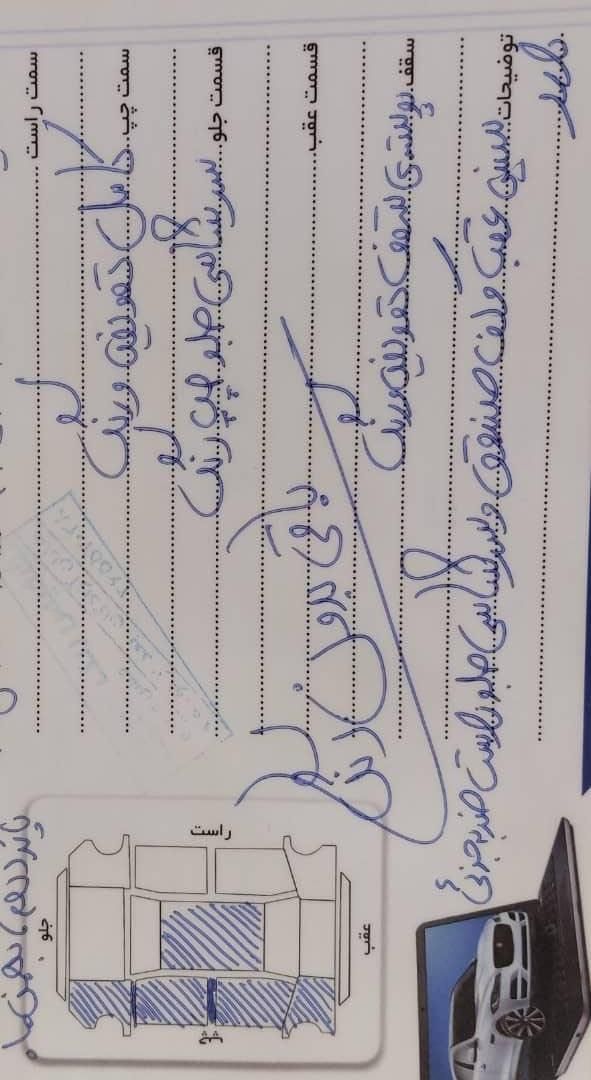 سمت راست
سمت چپ کامل تعویض و رنگ
قسمت جلو سر شاسی جلو چپ رنگ
قسمت عقب
باقی بدون رنگ
سقف پولیشی سقف تعویض و رنگ
توضیحات سینی عقب و کف صندوق و سر شاسی جلو راست ضربه جزئی
دارد
جلو
راست
چپ
عقب